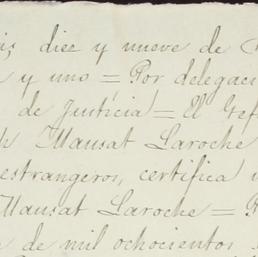 is, diez y nueve de
y uno = Por delegaci
de Justicia = El Gef
h Mansat Laroche
estrangeros, certifica
Mansat Laroche =
de mil ochocientos